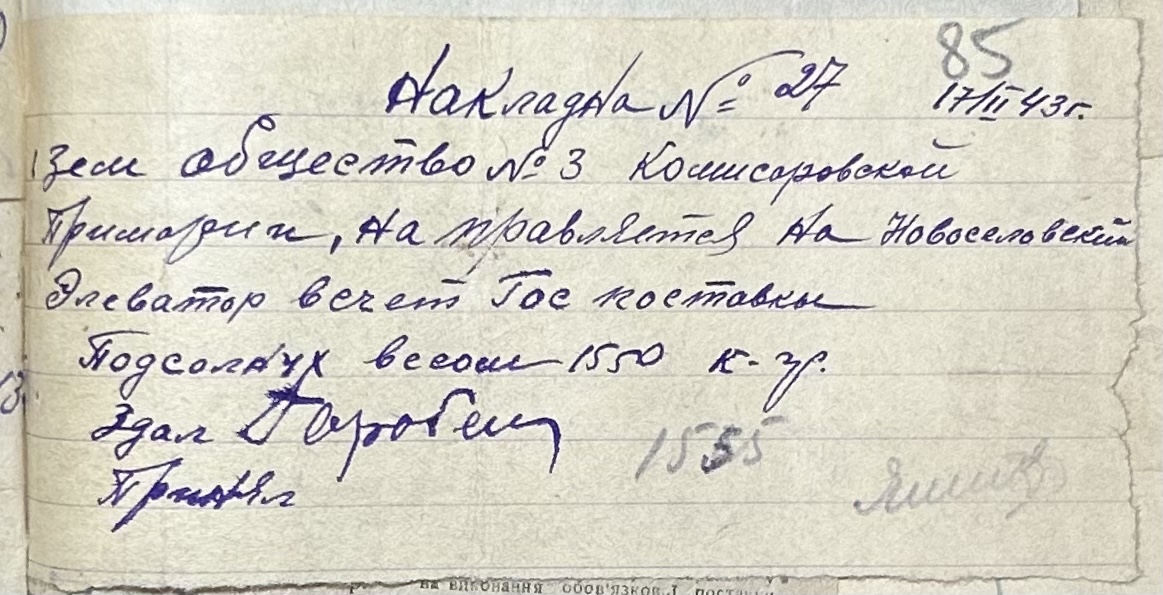 85
Накладна № 27 17/II 43г.
Зем общество № 3 Комисаровской
, на правляется на Новоселовский
Элеватор в счет Гос поставки
Подсолнух весом 1550 к-гр.
Здал
1555
Принял
на виконання обов'язков